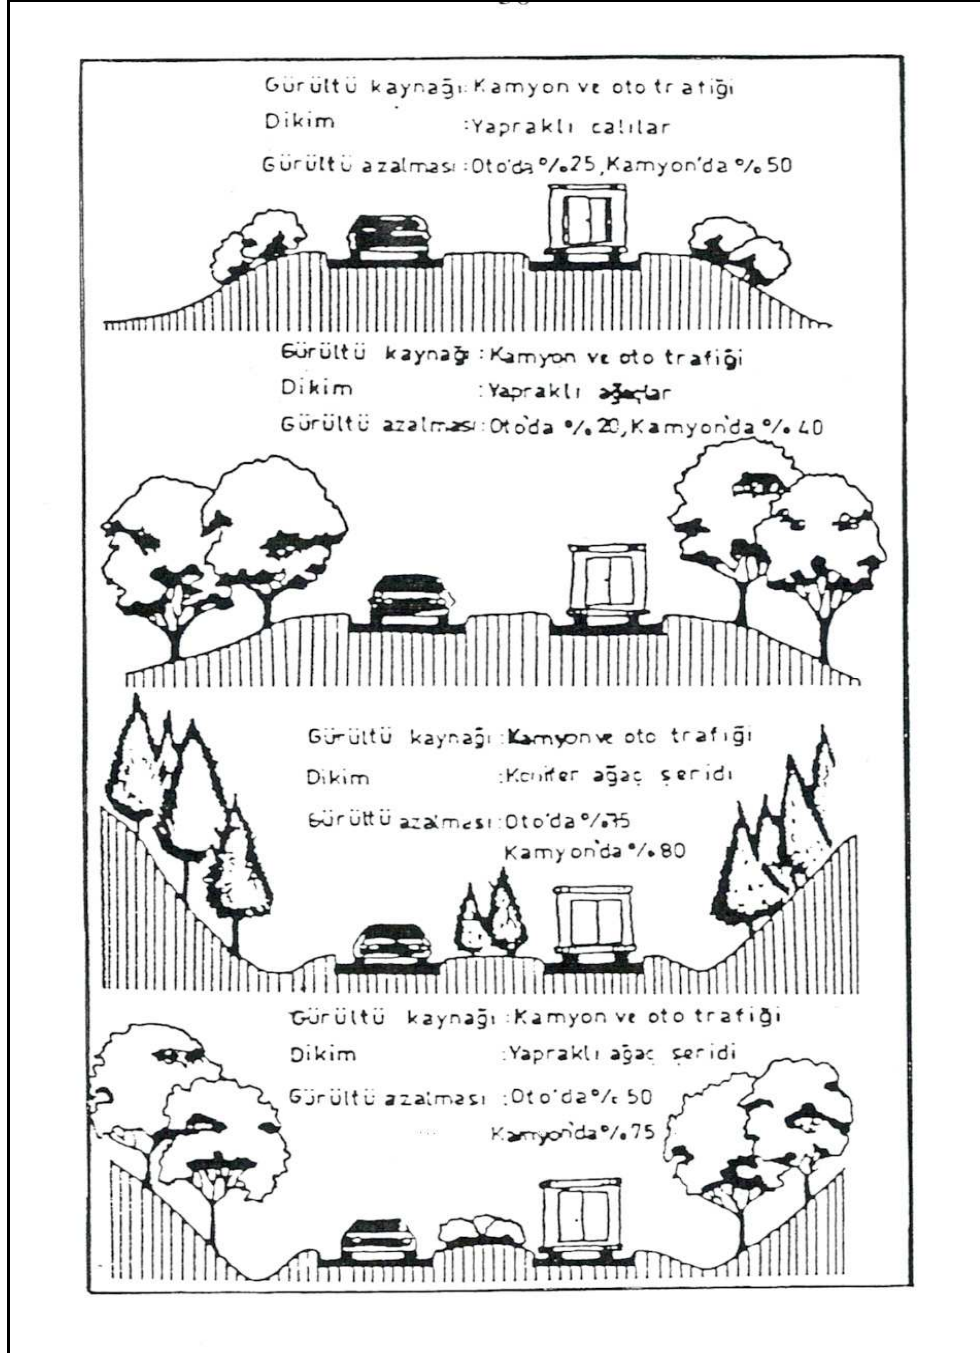 Gürültü kaynağı: Kamyon ve oto trafiği
Dikim :Yapraklı calılar
Gürültü azalması :Oto'da %25, Kamyon'da %50
Gürültü kaynağı : Kamyon ve oto trafiği
Dikim :Yapraklı ağaçlar
Gürültü azalması: Oto'da %20, Kamyon'da %40
Gürültü kaynağı :Kamyon ve oto trafiği
Dikim :Konifer ağaç şeridi
Gürültü azalması :Oto'da %75
Kamyon'da %80
Gürültü kaynağı :Kamyon ve oto trafiği
Dikim :Yapraklı ağaç şeridi
Gürültü azalması :Oto'da % 50
Kamyon'da %75